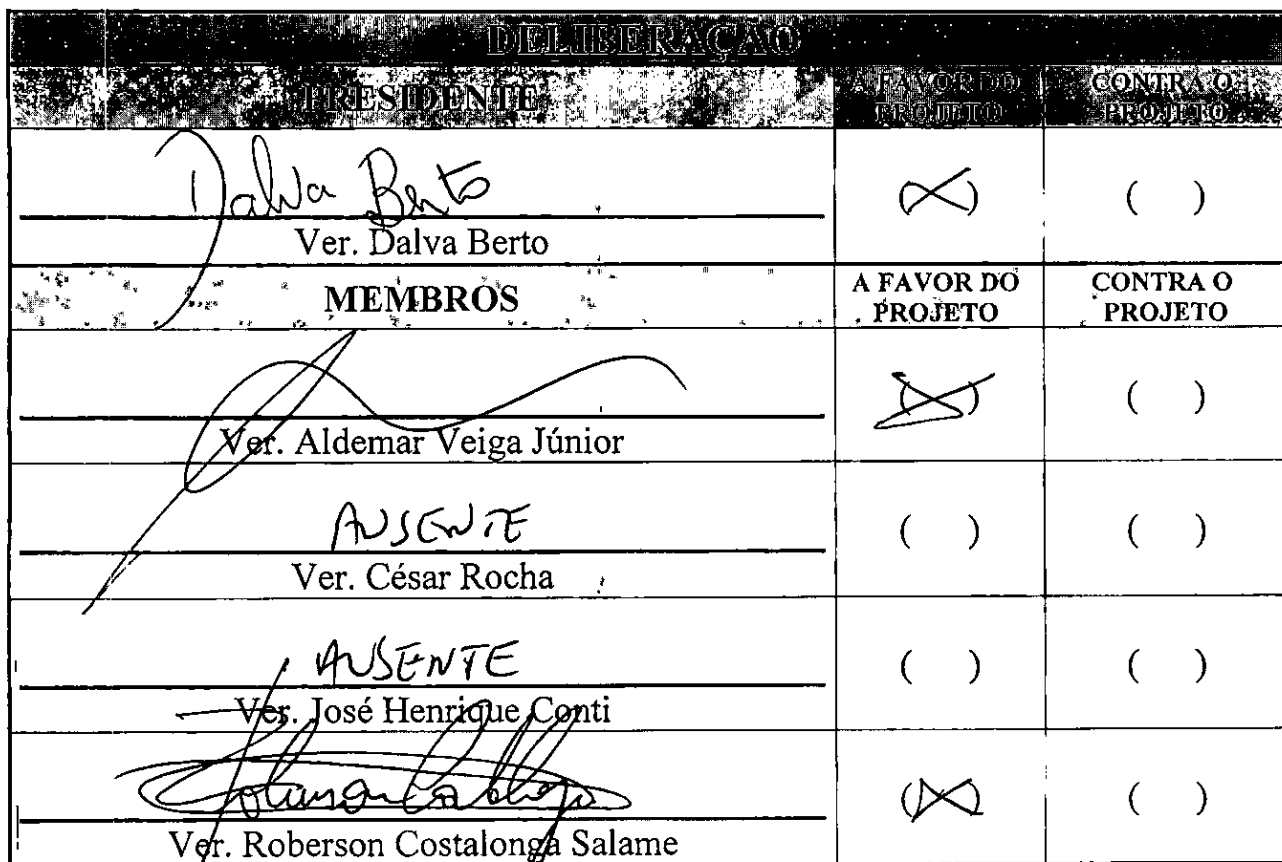 DELIBERAÇÃO
PRESIDENTE
A FAVOR DO PROJETO
CONTRA O PROJETO
Dalva Berto
(X)
( )
Ver. Dalva Berto
MEMBROS
A FAVOR DO PROJETO
CONTRA O PROJETO
(X)
( )
Ver. Aldemar Veiga Júnior
AUSENTE
( )
( )
Ver. César Rocha
AUSENTE
( )
( )
Ver. José Henrique Conti
(X)
( )
Ver. Roberson Costalonga Salame